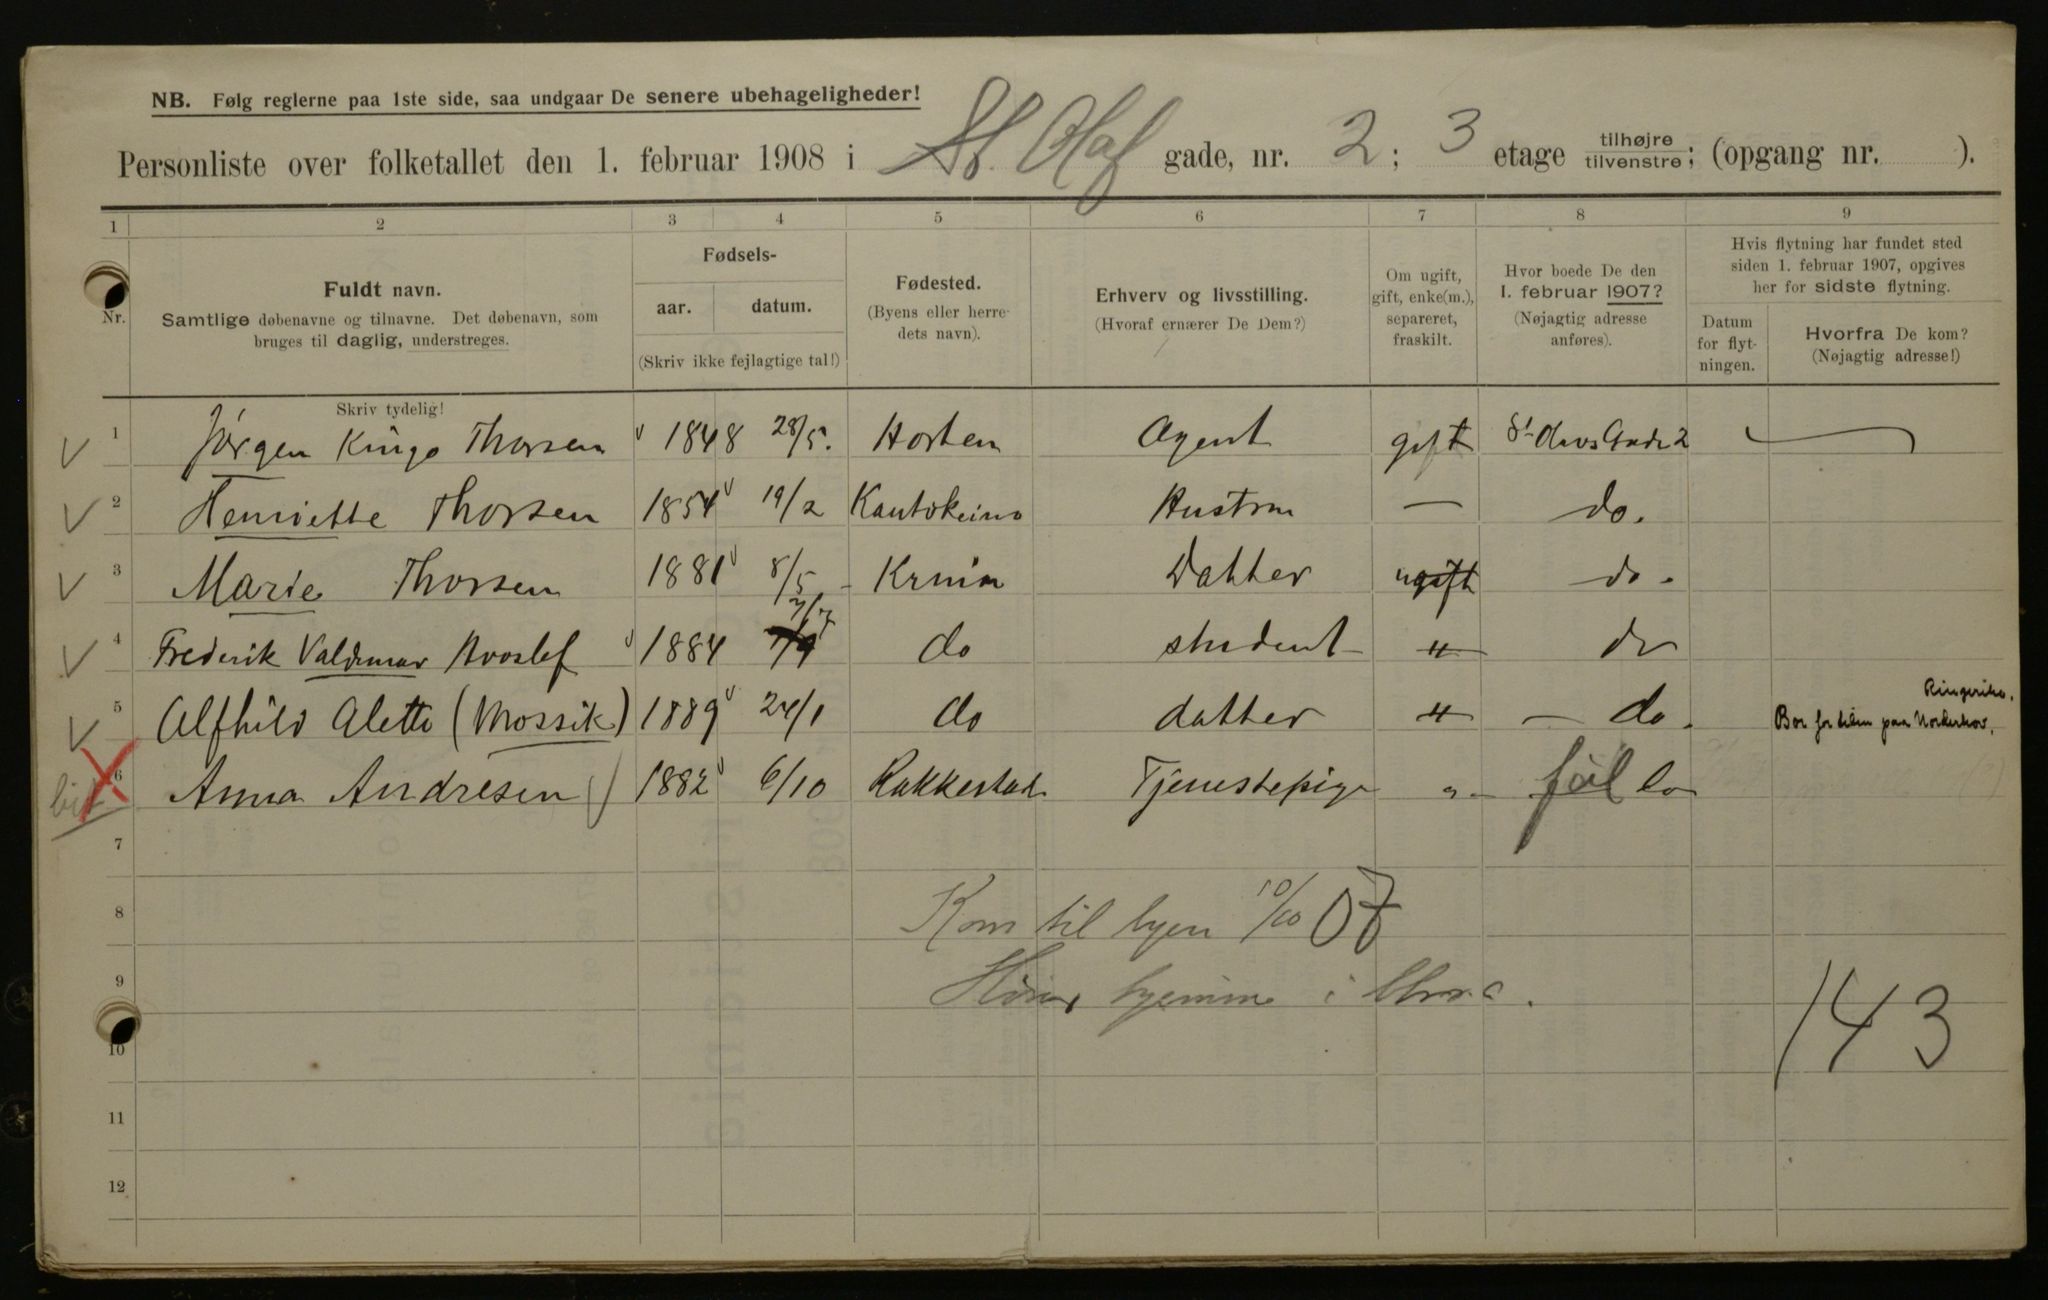 NB. Følg reglerne paa 1ste side, saa undgaar De senere ubehageligheder!
Personliste over folketallet den 1. februar 1908 i St. Olaf gade, nr. 2; 3 etage tilhøjre tilvenstre; (opgang nr. ).
1 2 3 4 5 6 7 8 9
Nr.
Fuldt navn.
Samtlige døbenavne og tilnavne. Det døbenavn, som
bruges til daglig, understreges.
Fødsels-
aar. datum.
(Skriv ikke fejlagtige tal!)
Fødested.
(Byens eller herre-
dets navn).
Erhverv og livsstilling.
(Hvoraf ernærer De Dem?)
Om ugift,
gift, enke(m.),
separeret,
fraskilt.
Hvor boede De den
1. februar 1907?
(Nøjagtig adresse
anføres).
Hvis flytning har fundet sted
siden 1. februar 1907, opgives
her for sidste flytning.
Datum
for flyt-
ningen.
Hvorfra De kom?
(Nøjagtig adresse!)
Skriv tydelig!
1 Jörgen Kingo Thorsen 1848 28/5. Horten Agent gift St Olavs Gade 2
2 Henriette Thorsen 1854 19/2 Kautokeino Hustru — do.
3 Marie Thorsen 1881 8/5 Krnia Datter ugift do.
4 Frederik Valdemar 1884 7/7 do student " do
5 Alfhild Alette (Mossik) 1889 24/1 do datter " — do.
Ringerike.
Bor for tiden paa Norderhov.
6 Anna Andresen 1882 6/10 Rakkestad Tjenestepige " föl do
7
8
9
10
11
12
Kom til byen 10/10 07
hjemme i Chra.
143